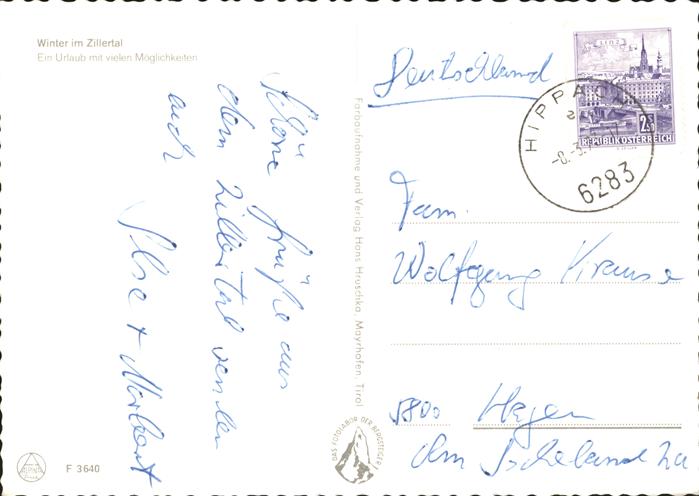 Winter im Zillertal
Ein Urlaub mit vielen Möglichkeiten
Schöne Grüße aus
dem Zillertal senden
euch
Ilse + Norbert
F 3640
Farbaufnahme und Verlag Hans Hruschka, Mayrhofen, Tirol
DAS FOTOLABOR DER BERGSTEIGER
Deutschland
LINZ
2.50
REPUBLIK ÖSTERREICH
HIPPACH
a
-8.-3.7
6283
Fam.
Wolfgang Krause
5800 Hagen